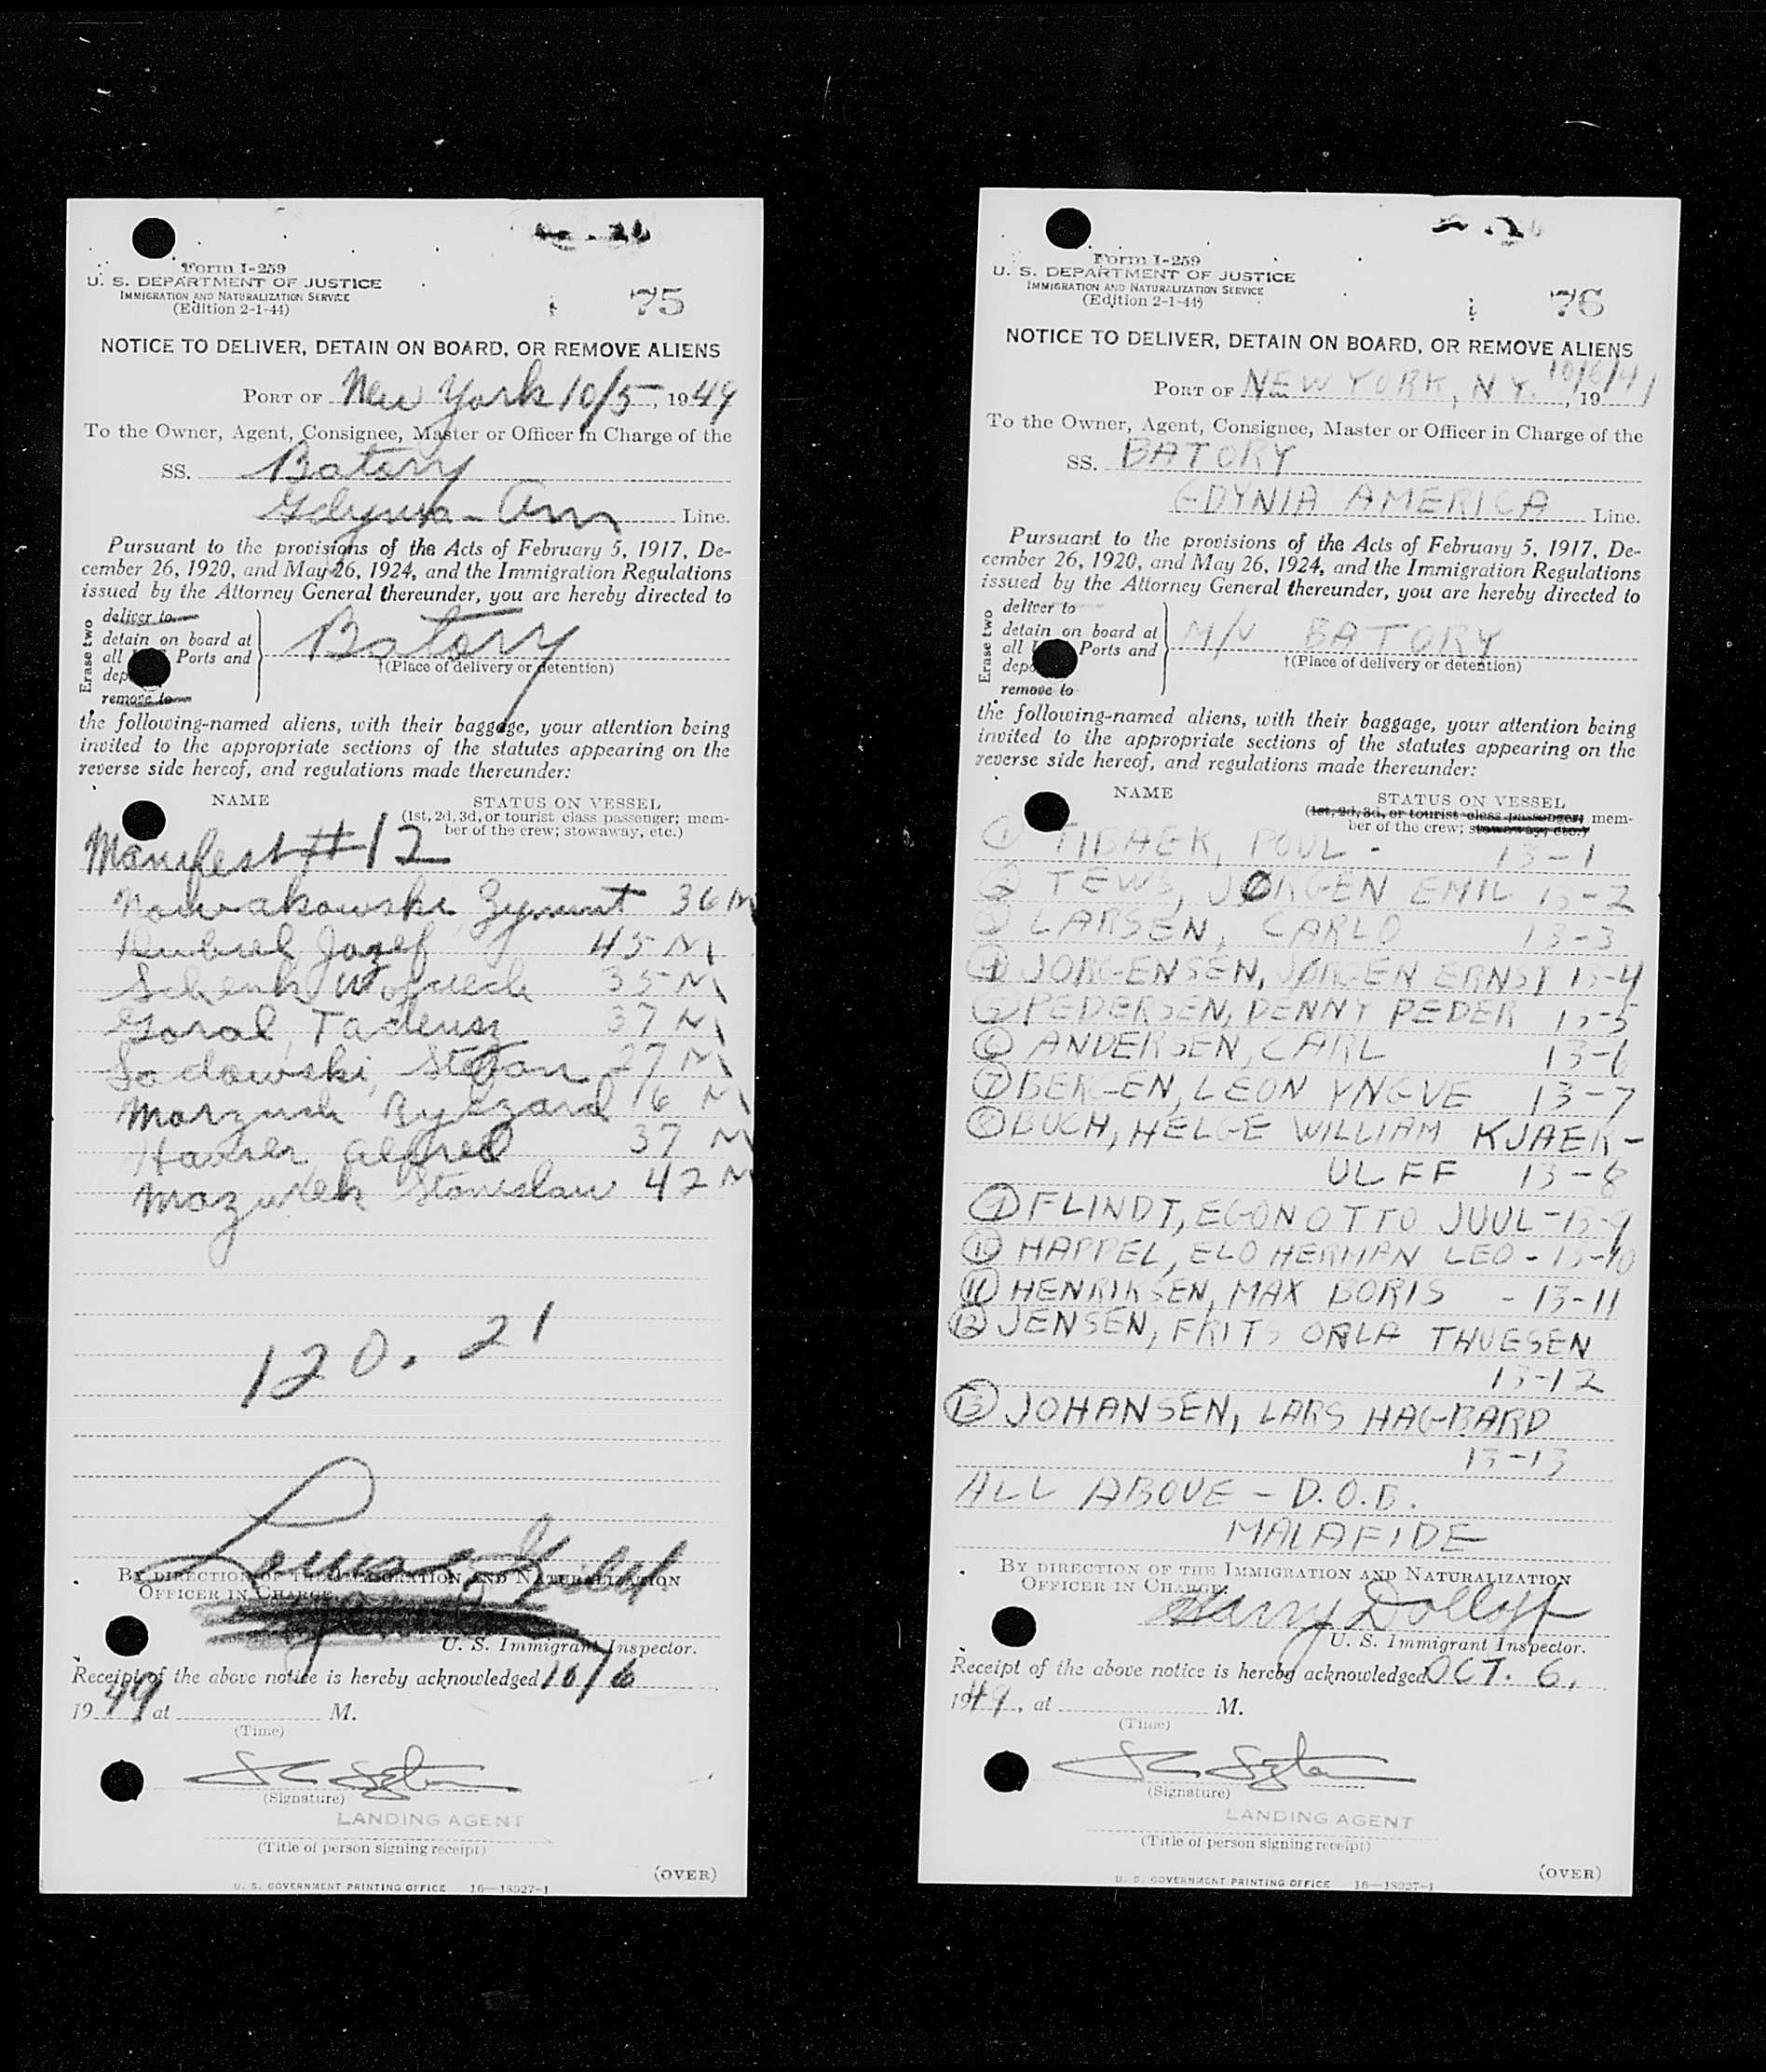 Form I-259
U. S. DEPARTMENT OF JUSTICE
IMMIGRATION AND NATURALIZATION SERVICE
(Edition 2-1-44)
75
NOTICE TO DELIVER, DETAIN ON BOARD, OR REMOVE ALIENS
PORT OF New York 10/5, 1949
To the Owner, Agent, Consignee, Master or Officer in Charge of the
SS. Batory
Gdynia - Am Line.
Pursuant to the provisions of the Acts of February 5, 1917, De-
cember 26, 1920, and May 26, 1924, and the Immigration Regulations
issued by the Attorney General thereunder, you are hereby directed to
Erase two
deliver to
detain on board at
all Ports and
remove to
Batory
†(Place of delivery or detention)
the following-named aliens, with their baggage, your attention being
invited to the appropriate sections of the statutes appearing on the
reverse side hereof, and regulations made thereunder:
NAME STATUS ON VESSEL
(1st, 2d, 3d, or tourist class passenger; mem-
ber of the crew; stowaway, etc.)
Manifest # 12
Nowakowski Zygmunt 36 M
Jozef 45 M
Schenk 35 M
Goral, Tadeusz 37 M
Sadowski, Stefan 27 M
Ryszard 16 M
Hauser Alfred 37 M
Mazurek Stanislaw 42 M
120. 21
BY DIRECTION OF THE IMMIGRATION AND NATURALIZATION
OFFICER IN CHARGE
U. S. Immigrant Inspector.
Receipt of the above notice is hereby acknowledged 10/6
1949 at M.
(Time)
(Signature)
LANDING AGENT
(Title of person signing receipt)
(OVER)
U. S. GOVERNMENT PRINTING OFFICE 16—18927-1
Form I-259
U. S. DEPARTMENT OF JUSTICE
IMMIGRATION AND NATURALIZATION SERVICE
(Edition 2-1-44)
76
NOTICE TO DELIVER, DETAIN ON BOARD, OR REMOVE ALIENS
PORT OF NEW YORK, N.Y. , 19
To the Owner, Agent, Consignee, Master or Officer in Charge of the
SS. BATORY
GDYNIA AMERICA Line.
Pursuant to the provisions of the Acts of February 5, 1917, De-
cember 26, 1920, and May 26, 1924, and the Immigration Regulations
issued by the Attorney General thereunder, you are hereby directed to
Erase two
deliver to
detain on board at
all Ports and
remove to
M/V BATORY
†(Place of delivery or detention)
the following-named aliens, with their baggage, your attention being
invited to the appropriate sections of the statutes appearing on the
reverse side hereof, and regulations made thereunder:
NAME STATUS ON VESSEL
(1st, 2d, 3d, or tourist class passenger; mem-
ber of the crew; stowaway, etc.)
① TIBAEK, POUL - 13-1
② TEWS, JØRGEN EMIL 13-2
③ LARSEN, CARLO 13-3
④ JORGENSEN, JØRGEN ERNST 13-4
⑤ PEDERSEN, DENNY PEDER 13-5
⑥ ANDERSEN, CARL 13-6
⑦ BERGEN, LEON YNGVE 13-7
⑧ BUCH, HELGE WILLIAM KJAER-
ULFF 13-8
⑨ FLINDT, EGON OTTO JUUL - 13-9
⑩ HAPPEL, ELO HERMAN LEO - 13-10
⑪ HENRIKSEN, MAX BORIS - 13-11
⑫ JENSEN, FRITS ORLA THUESEN
13-12
⑬ JOHANSEN, LARS HAGBARD
13-13
ALL ABOVE - D.O.B.
MALAFIDE
BY DIRECTION OF THE IMMIGRATION AND NATURALIZATION
OFFICER IN CHARGE:
Harry Dolloff
U. S. Immigrant Inspector.
Receipt of the above notice is hereby acknowledged OCT. 6,
1949, at M.
(Time)
(Signature)
LANDING AGENT
(Title of person signing receipt)
(OVER)
U. S. GOVERNMENT PRINTING OFFICE 16—18927-1